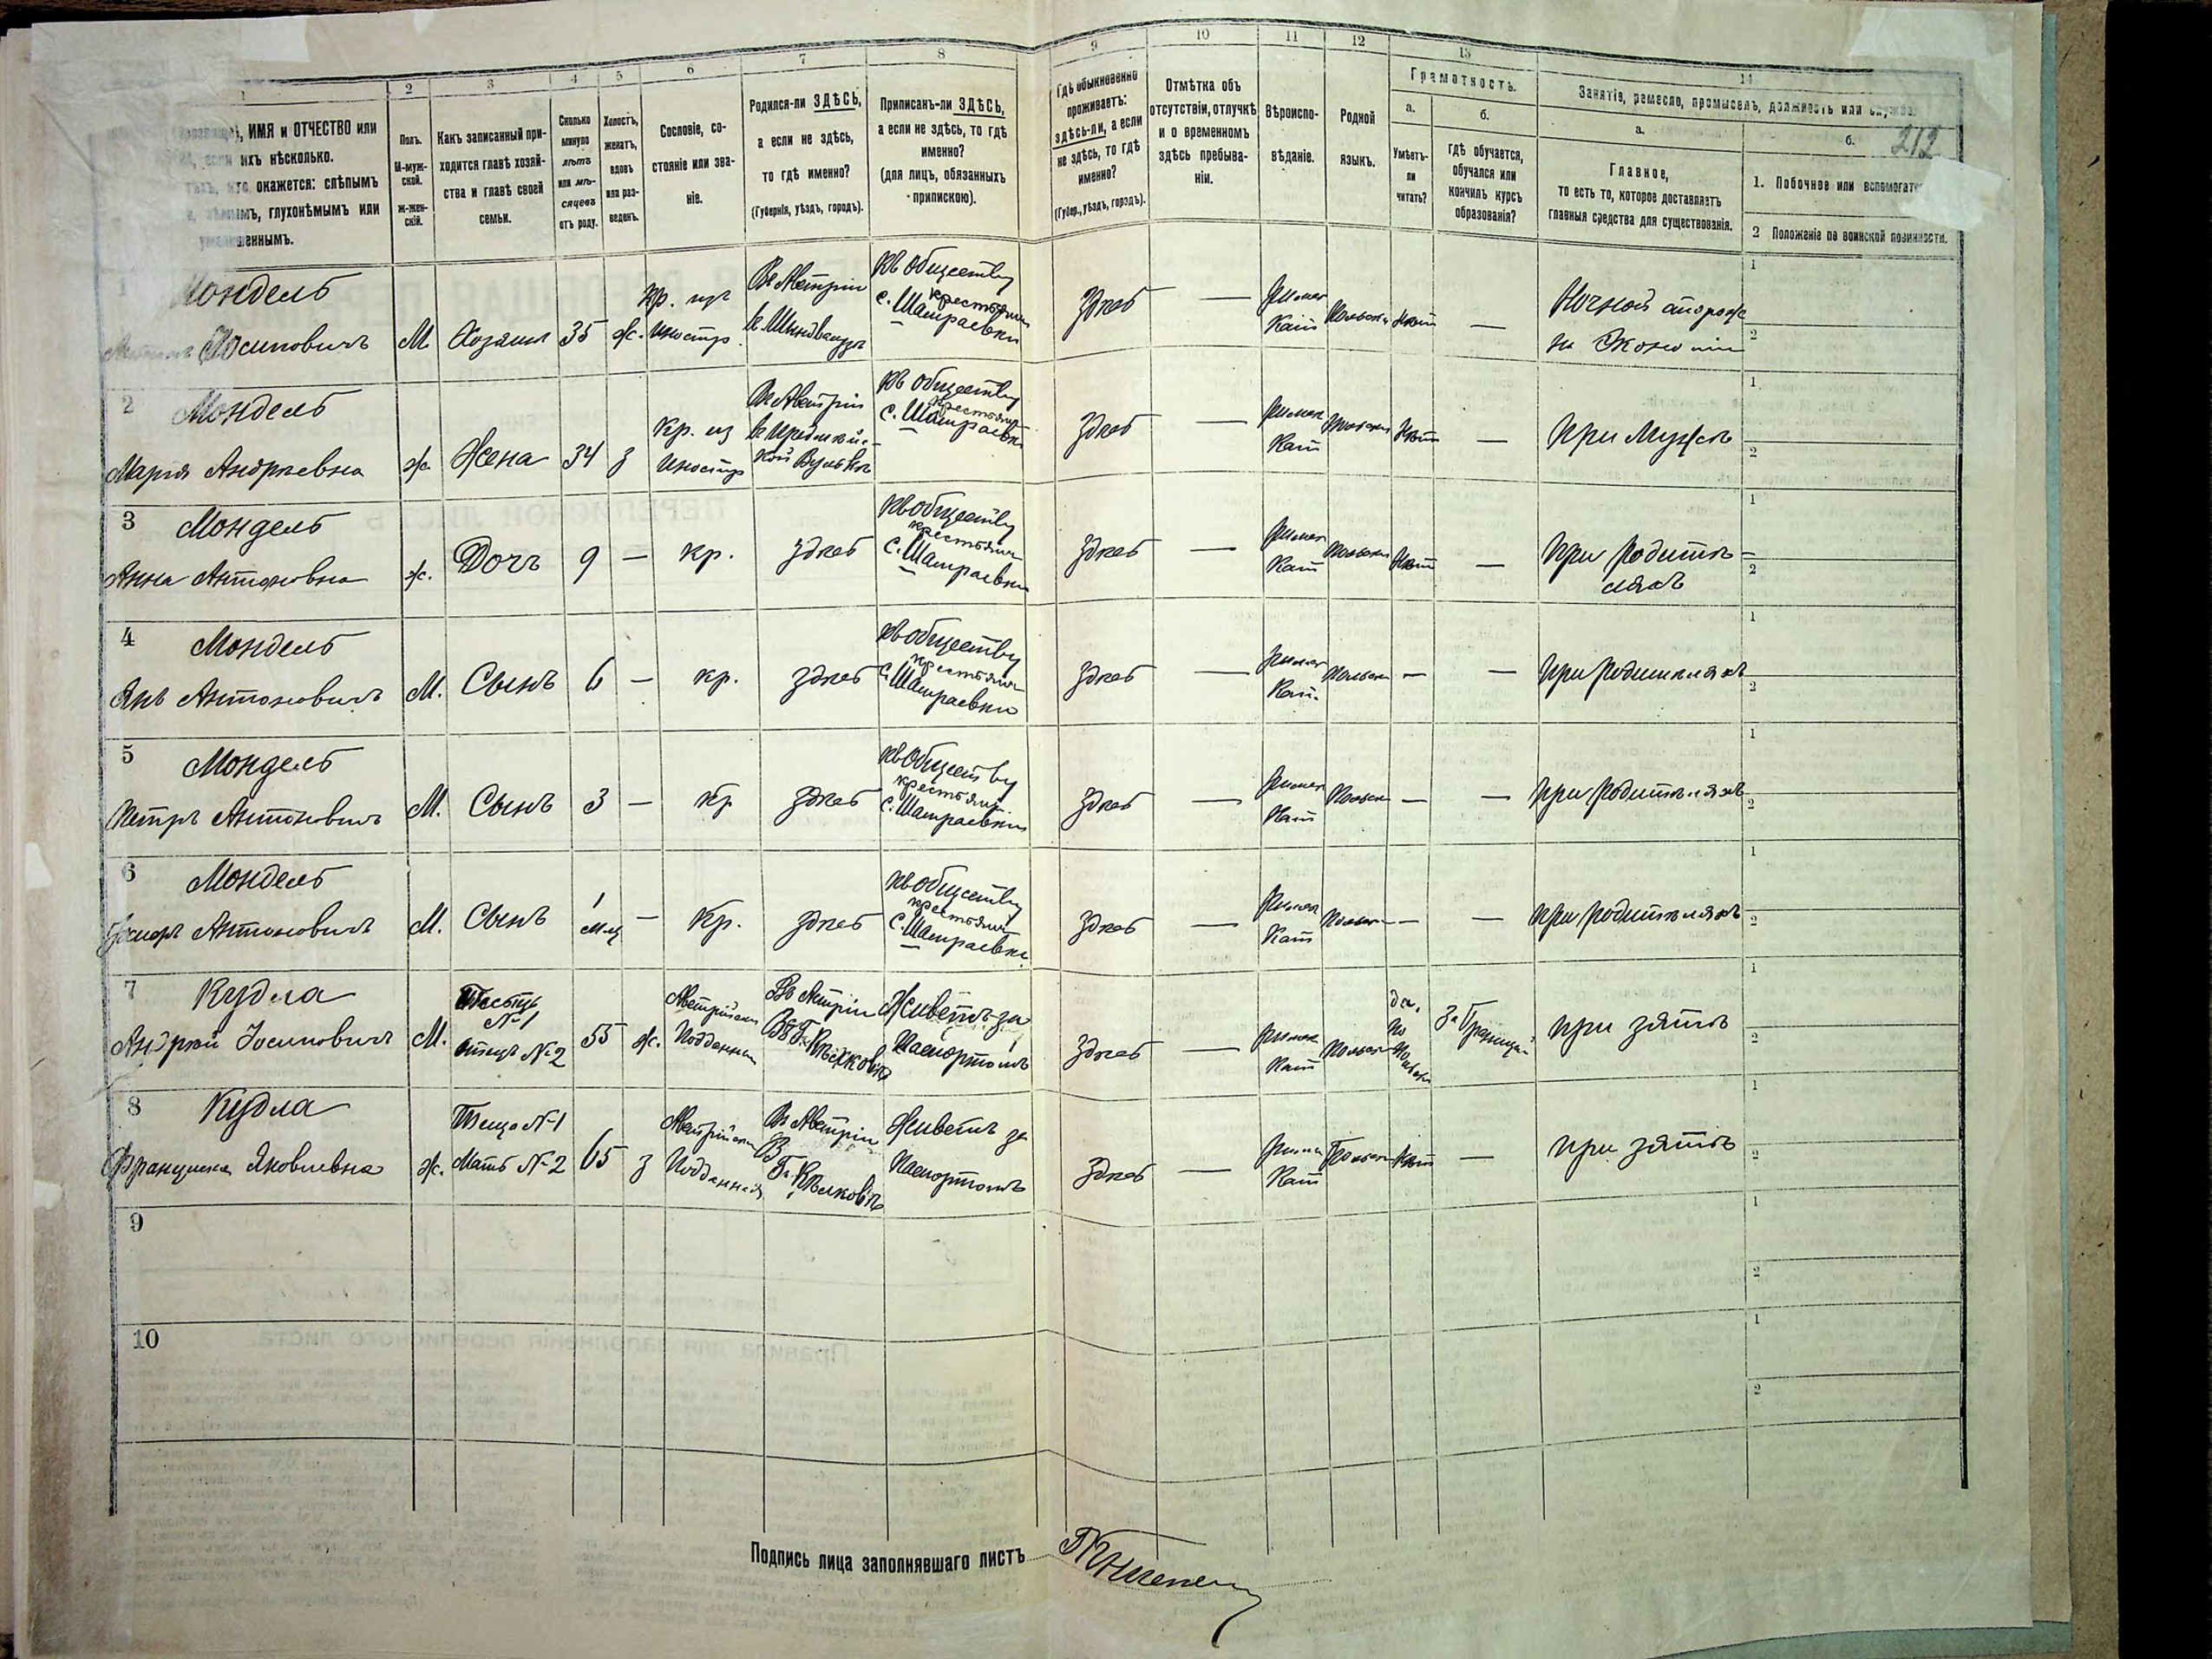 212
1 2 3 4 5 6 7 8 9 10 11 12 13 14
ИМЯ и ОТЧЕСТВО или
ихъ нѣсколько.
кто окажется: слѣпымъ
нѣмымъ, глухонѣмымъ или
умалишеннымъ.
Полъ.
М-муж-
ской.
Ж-жен-
скій.
Какъ записанный при-
ходится главѣ хозяй-
ства и главѣ своей
семьи.
Сколько
минуло
лѣтъ
или мѣ-
сяцевъ
отъ роду.
Холостъ,
женатъ,
вдовъ
или раз-
веденъ.
Сословіе, со-
стояніе или зва-
ніе.
Родился-ли ЗДѢСЬ,
а если не здѣсь,
то гдѣ именно?
(Губернія, уѣздъ, городъ).
Приписанъ-ли ЗДѢСЬ,
а если не здѣсь, то гдѣ
именно?
(для лицъ, обязанныхъ
припискою).
Гдѣ обыкновенно
проживаетъ:
здѣсь-ли, а если
не здѣсь, то гдѣ
именно?
(Губер., уѣздъ, городъ).
Отмѣтка объ
отсутствіи, отлучкѣ
и о временномъ
здѣсь пребыва-
ніи.
Вѣроиспо-
вѣданіе.
Родной
языкъ.
Грамотность.
а.
Умѣетъ-
ли
читать?
б.
гдѣ обучается,
обучался или
кончилъ курсъ
образованія?
Занятіе, ремесло, промыселъ, должность или служба.
а.
Главное,
то есть то, которое доставляетъ
главныя средства для существованія.
б.
1. Побочное или вспомогат
2 Положеніе по воинской повинности.
1
Мондель
Іосиповичъ
М
Хозяинъ
35
ж.
кр. изъ
иностр.
Въ Австріи
Къ обществу
крестьянъ
с. Шатраевки
здѣсь
—
Римск
Кат
Польскій
Нѣтъ
—
Ночной сторожъ
на Экономіи
2
Мондель
Марія Андрѣевна
ж.
Жена
34
з
кр. из
иностр
Въ Австріи
Къ обществу
крестьянъ
с. Шатраевки
здѣсь
—
Римск
Кат
Польскій
Нѣтъ
—
при Мужѣ
3
Мондель
Анна Антоновна
ж.
Дочь
9
—
кр.
здѣсь
Къ обществу
крестьянъ
с. Шатраевки
здѣсь
—
Римск
Кат
Польскій
Нѣтъ
—
при родите
ляхъ
4
Мондель
Янъ Антоновичъ
М.
Сынъ
6
—
кр.
здѣсь
Къ обществу
крестьянъ
с. Шатраевки
здѣсь
—
Римск
Кат.
Польскій
—
—
при родителяхъ
5
Мондель
Петръ Антоновичъ
М.
Сынъ
3
—
кр
здѣсь
Къ обществу
крестьянъ
с. Шатраевки
здѣсь
—
Римск
Кат
Польскій
—
—
при родителяхъ
6
Мондель
Антоновичъ
М.
Сынъ
1
мѣц
—
Кр.
здѣсь
Къ обществу
крестьянъ
с. Шатраевки
здѣсь
—
Римск
Кат
Польск
—
—
при родителяхъ
7
Кудла
Андрей Іосиповичъ
М.
Тесть
№1
отецъ №2
55
ж.
Австрійскій
Подданный
Въ Австріи
Живетъ за
Паспортомъ
здѣсь
—
Римск
Кат
Польск
да.
по
польски
За Границей
при зятѣ
8
Кудла
Франциска Яковлевна
ж.
Теща №1
Мать №2
65
з
Австрійская
Подданная
Въ Австріи
В
Живетъ за
Паспортомъ
здѣсь
—
Римск
Кат
Польск
Нѣтъ
—
при зятѣ
9
10
Подпись лица заполнявшаго листъ